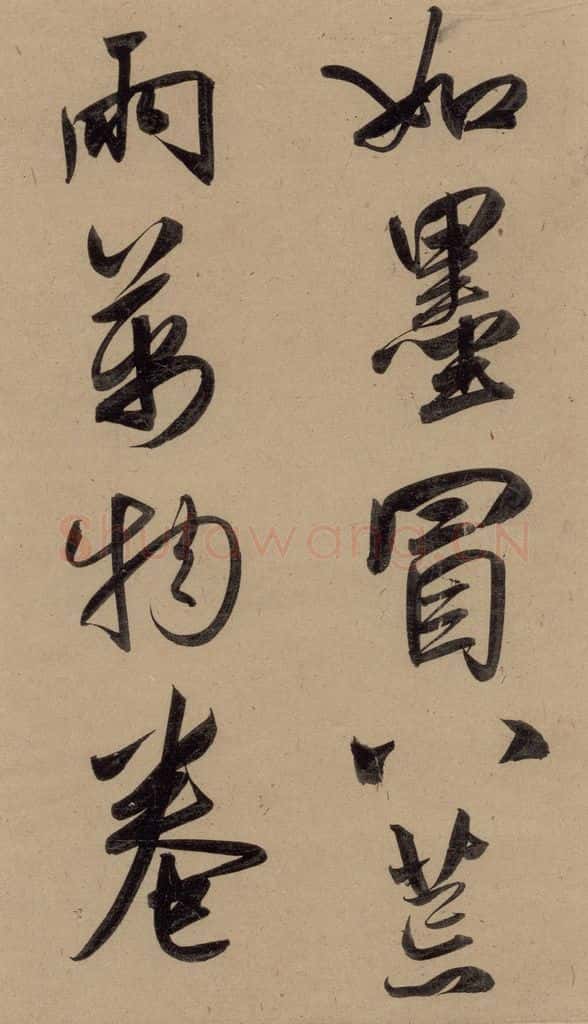 如墨冒八荒
雨萬物卷
Shufawang.CN